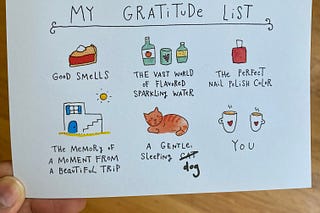 MY GRATITUDE LIST
GOOD SMELLS
THE VAST WORLD
OF FLAVORED
SPARKLING WATER
THE PERFECT
NAIL POLISH COLOR
THE MEMORY OF
A MOMENT FROM
A BEAUTIFUL TRIP
A GENTLE,
SLEEPING CAT
dog
YOU